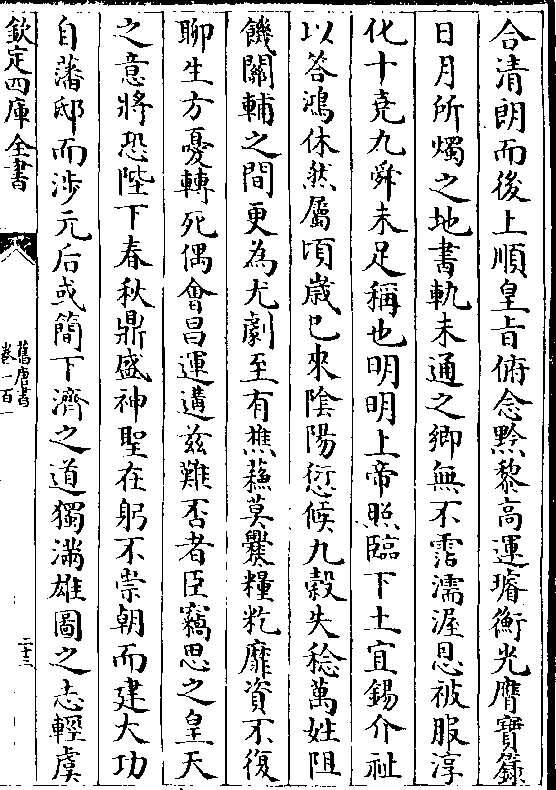 合清朗而後上順皇旨俯念黔黎高運璿衡光膺寶籙
日月所燭之地書軌未通之鄉無不霑濡渥恩被服淳
化十堯九舜未足稱也明明上帝照臨下土宜錫介祉
以答鴻休然屬頃歲已來陰陽愆候九穀失稔萬姓阻
饑關輔之間更為尤劇至有樵蘇莫爨糧粒靡資不復
聊生方憂轉死偶會昌運遘茲難否者臣竊思之皇天
之意將恐陛下春秋鼎盛神聖在躬不崇朝而建大功
自藩邸而涉元后或簡下濟之道獨滿雄圖之志輕虞
欽定四庫全書
舊唐書
卷一百一
二十三